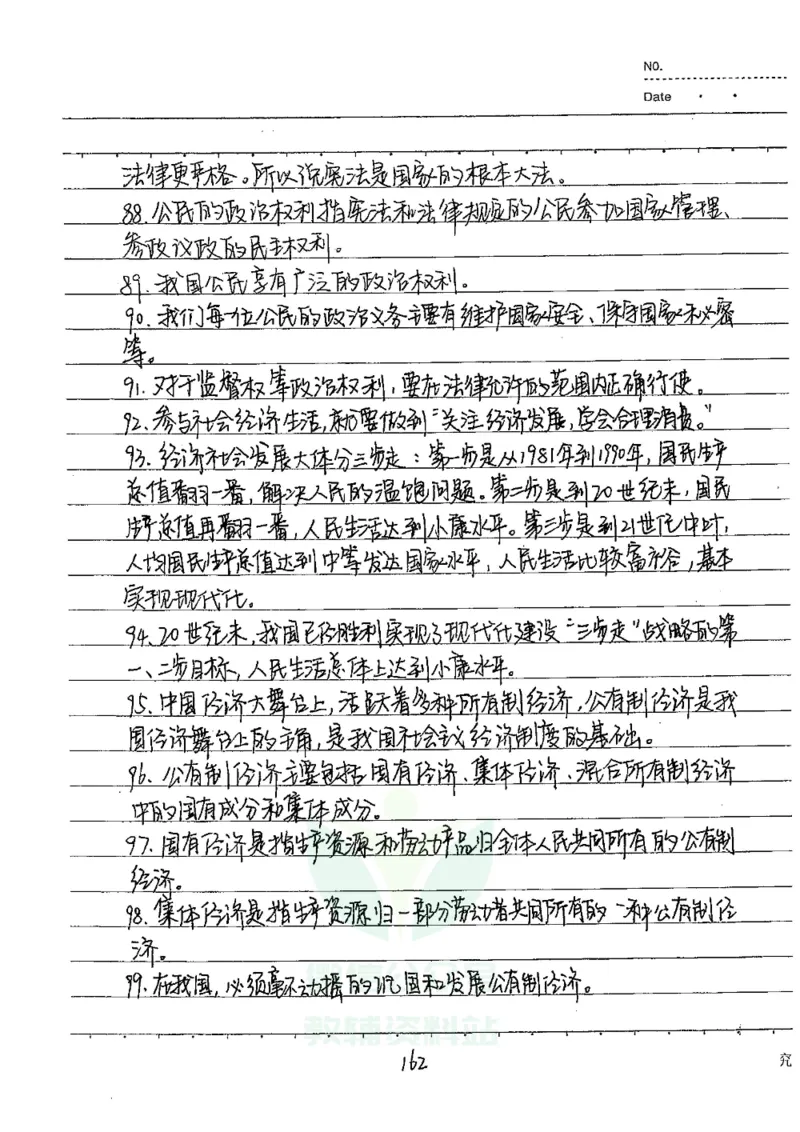 NO.
Date
法律更严格。所以说宪法是国家的根本大法。
88.公民的政治权利指宪法和法律规定的公民参加国家管理、
参政议政的民主权利。
89.我国公民享有广泛的政治权利。
90.我们每一位公民的政治义务主要有维护国家安全、保守国家秘密
等。
91.对于监督权等政治权利,要在法律允许的范围内正确行使。
92.参与社会经济生活,就要做到“关注经济发展,学会合理消费。”
93.经济社会发展大体分三步走:第一步是从1981年到1990年,国民生产
总值翻一番,解决人民的温饱问题。第二步是到20世纪末,国民
生产总值再翻一番,人民生活达到小康水平。第三步是到21世纪中叶,
人均国民生产总值达到中等发达国家水平,人民生活比较富裕,基本
实现现代化。
94.20世纪末,我国已经胜利实现了现代化建设“三步走”战略的第
一、二步目标,人民生活总体上达到小康水平。
95.中国经济大舞台上,活跃着多种所有制经济,公有制经济是我
国经济舞台上的主角,是我国社会主义经济制度的基础。
96.公有制经济主要包括国有经济、集体经济、混合所有制经济
中的国有成分和集体成分。
97.国有经济是指生产资源和劳动产品归全体人民共同所有的公有制
经济。
98.集体经济是指生产资源归一部分劳动者共同所有的一种公有制经
济。
99.在我国,必须毫不动摇的巩固和发展公有制经济。
教辅资料站
162
究